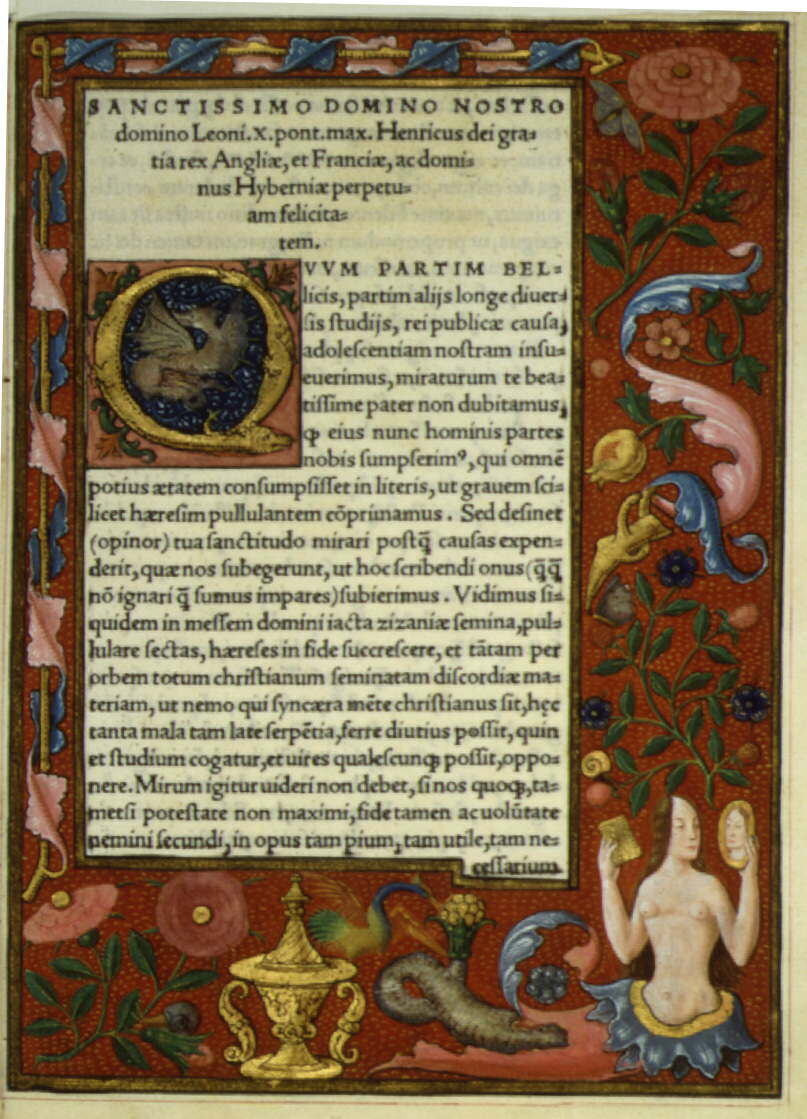 SANCTISSIMO DOMINO NOSTRO
domino Leoni.X.pont.max. Henricus dei gra=
tia rex Angliæ, et Franciæ, ac domi=
nus Hyberniæ perpetu=
am felicita=
tem.
QVVM PARTIM BEL=
licis, partim alijs longe diuer=
sis studijs, rei publicæ causa,
adolescentiam nostram insu=
euerimus, miraturum te bea=
tissime pater non dubitamus,
ꝙ eius nunc hominis partes
nobis sumpserimꝰ, qui omnē
potius ætatem consumpsisset in literis, ut grauem sci=
licet hæresim pullulantem cōprimamus. Sed desinet
(opinor) tua sanctitudo mirari postq̄ causas expen=
derit, quæ nos subegerunt, ut hoc scribendi onus (q̄q̄
nō ignari q̄ sumus impares) subierimus. Vidimus si=
quidem in messem domini iacta zizaniæ semina, pul=
lulare sectas, hæreses in fide succrescere, et tātam per
orbem totum christianum seminatam discordiæ ma=
teriam, ut nemo qui syncæra mēte christianus sit, hęc
tanta mala tam late serpētia, ferre diutius possit, quin
et studium cogatur, et uires qualescunqꝫ possit, oppo=
nere. Mirum igitur uideri non debet, si nos quoqꝫ, ta=
metsi potestate non maximi, fide tamen ac uolūtate
nemini secundi, in opus tam pium, tam utile, tam ne=
cessarium